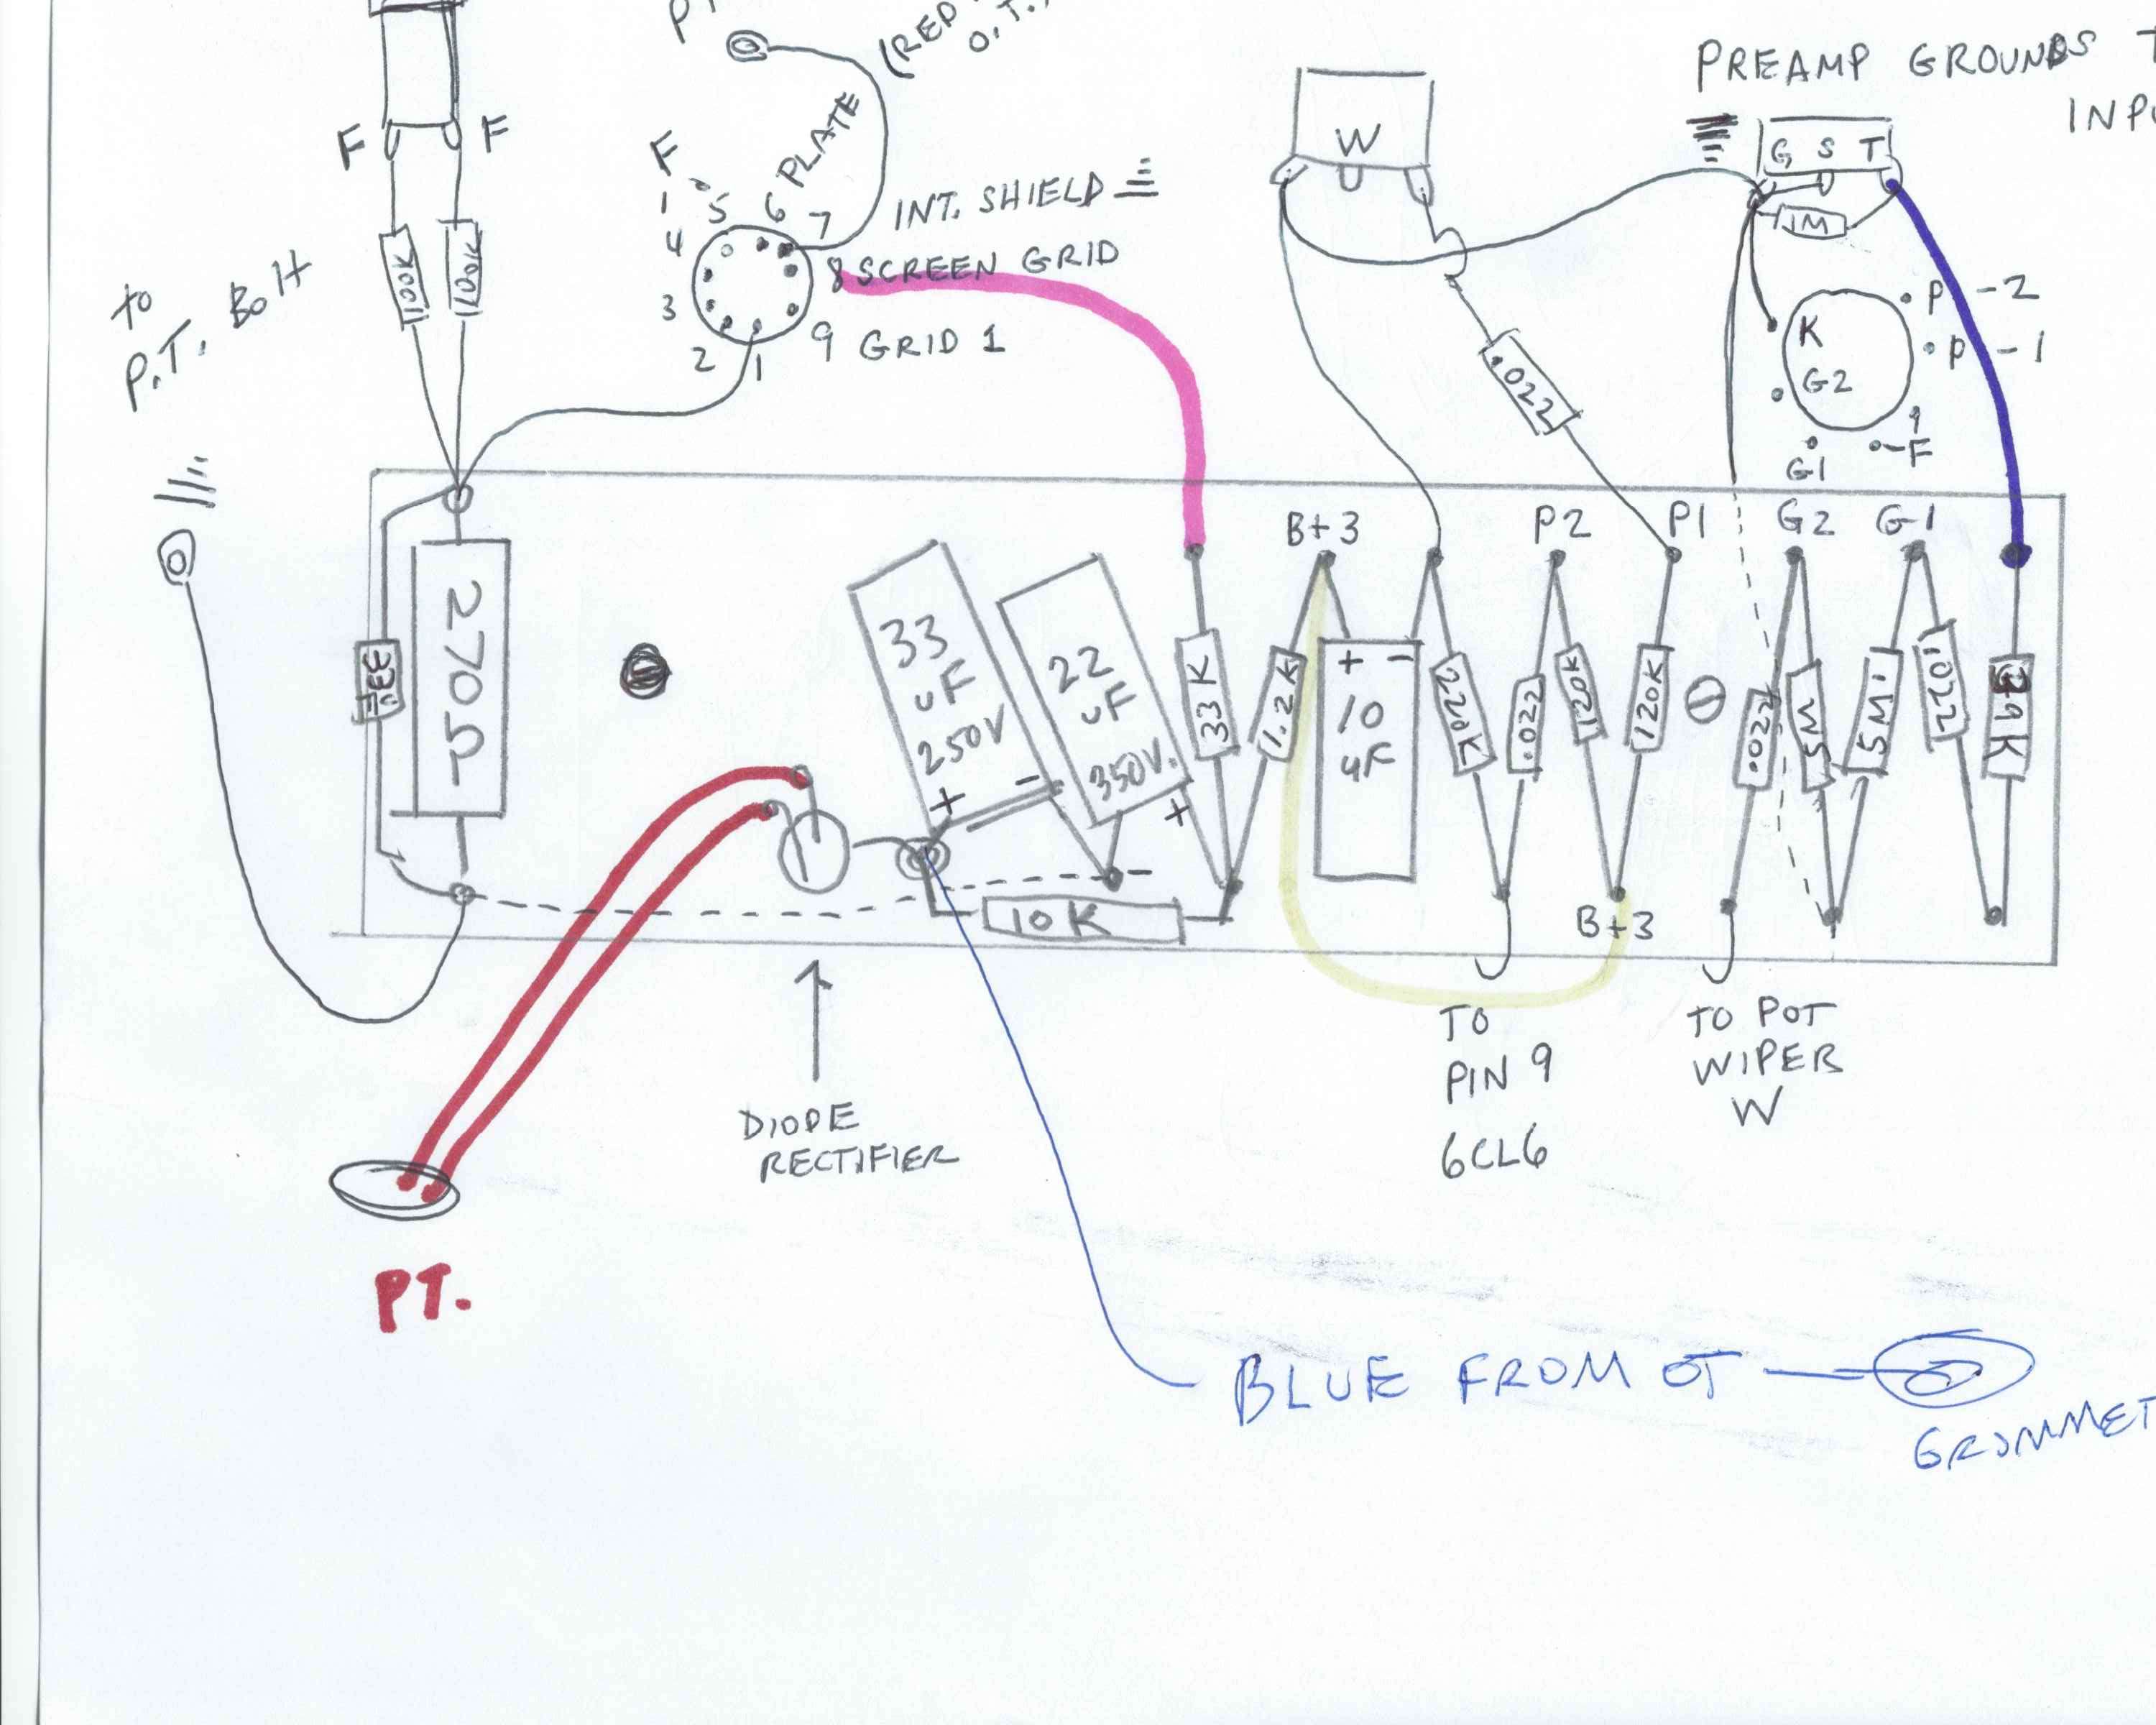 (RED
O.T.,
PREAMP GROUNDS
INPU
F F
F
PLATE
W
G S T
1M
INT. SHIELD
1
5 6 7
4
8 SCREEN GRID
3
9 GRID 1
2 1
100K 100K
to
P.T. Bolt
.022
P -2
K
P -1
G2
G1
F
B+3 P2 P1 G2 G1
270Ω
33uF
33
uF
250V
+
-
22
uF
350V.
+
-
33K
1.2K
+ -
10
uF
220K
.022
120K
120K
.022
5M
5M
.022
39K
10K
B+3
TO
PIN 9
6CL6
TO POT
WIPER
W
DIODE
RECTIFIER
PT.
BLUE FROM OT
GROMMET